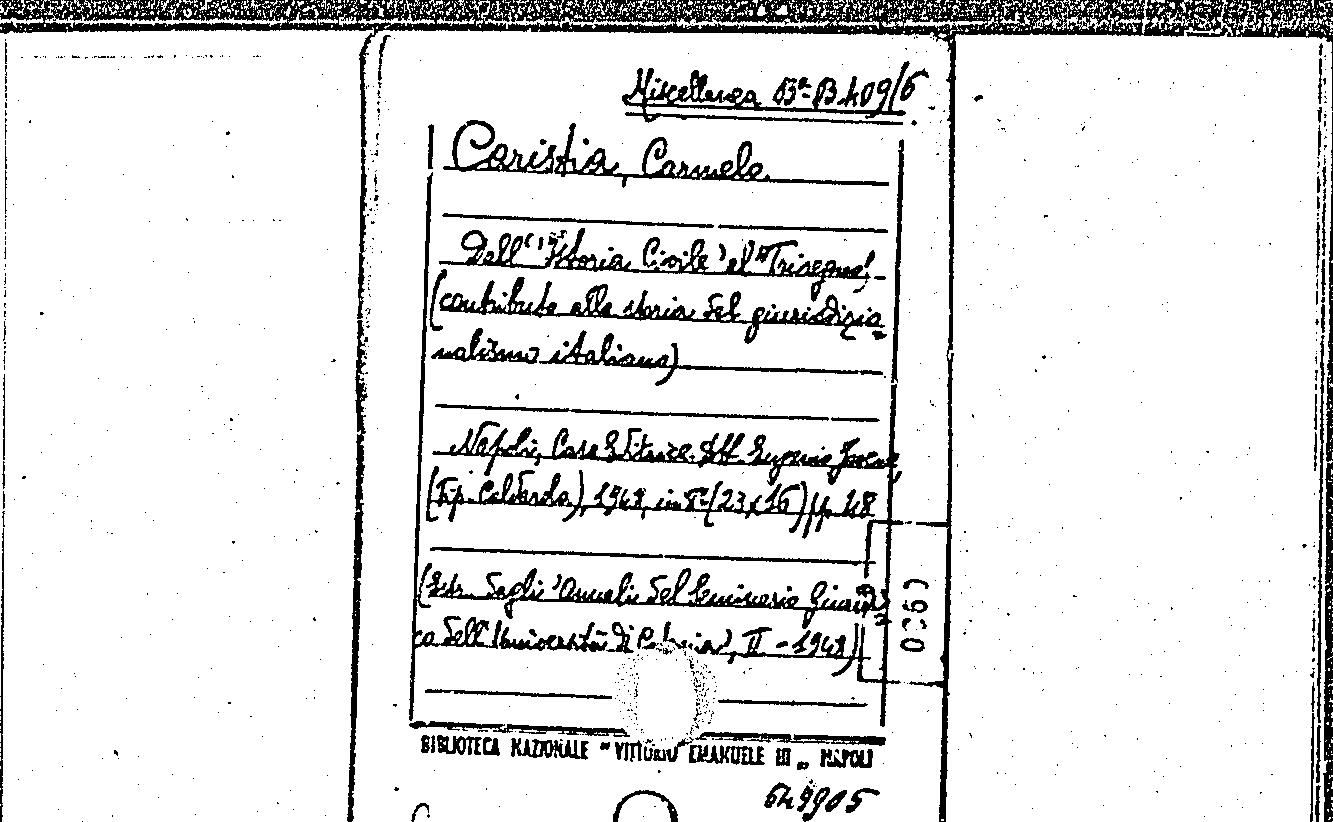 Miscellanea Ba-B409/6
Caristia, Carmelo.
Dall'"Istoria Civile" al "Triregno".-
(contributo alla storia del giurisdizio=
nalismo italiano)
Napoli, Casa Editrice Dott. Eugenio Jovene,
(Tip. Caldarola), 1948, in 8° (23x16) pp. 48
(Estr. dagli "Annali del Seminario Giuridi=
co dell'Università di Catania", II - 1948)
BIBLIOTECA NAZIONALE "VITTORIO EMANUELE III" NAPOLI
649905